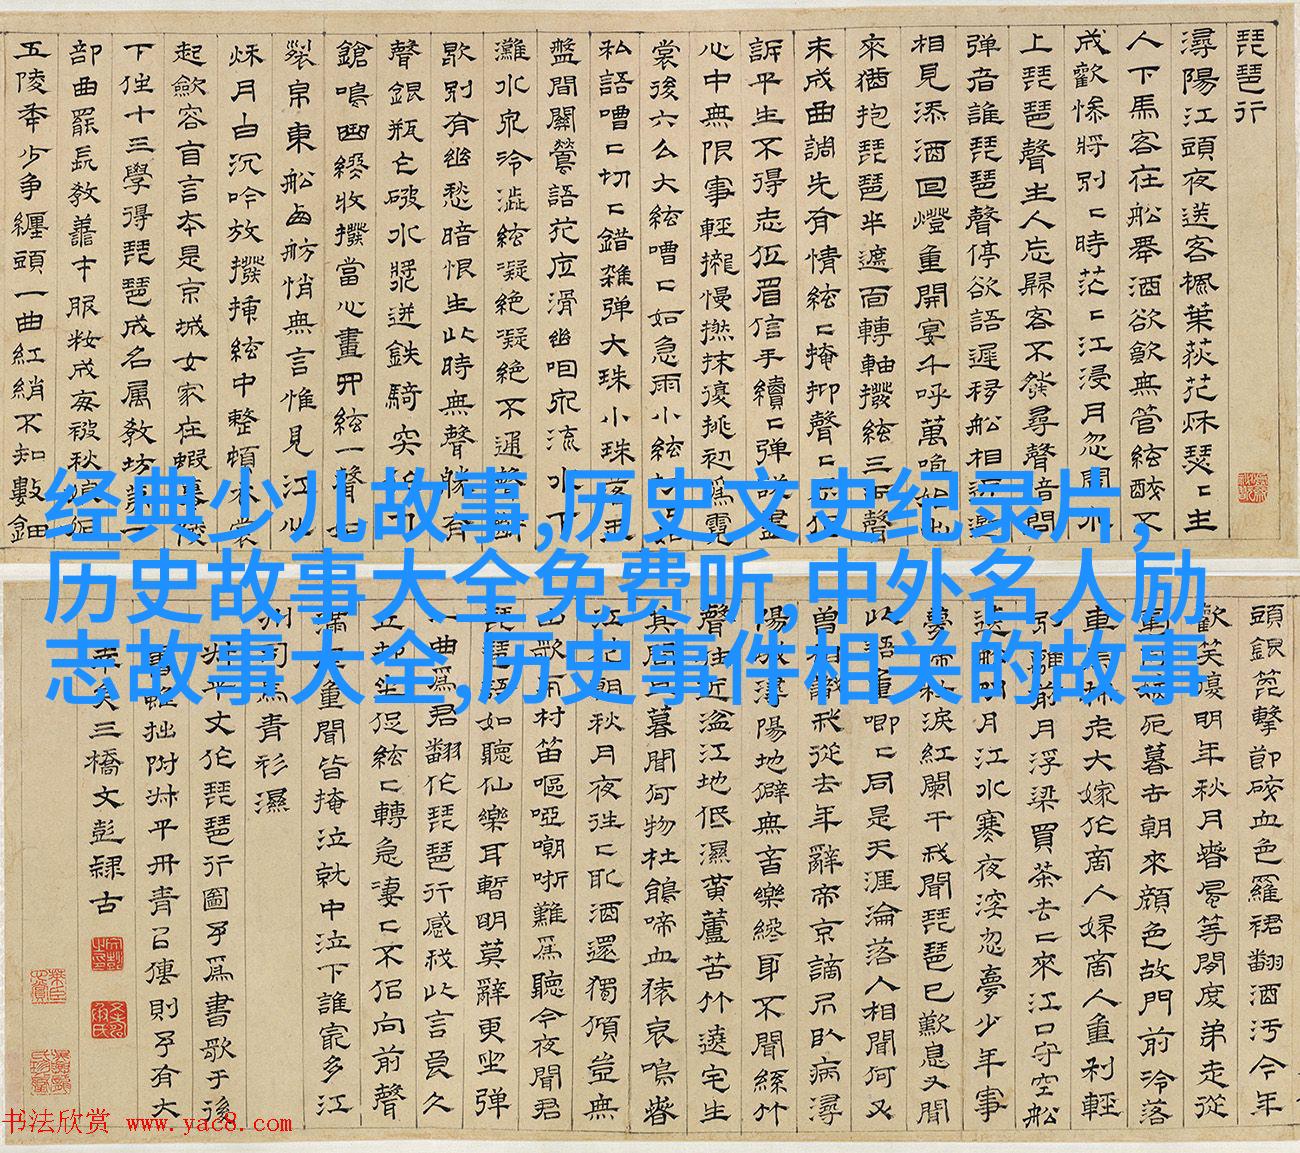 琵琶行
潯陽江頭夜送客楓葉荻花秋瑟〻主
人下馬客在船舉酒欲飲無管絃醉不
成歡慘將別〻時茫〻江浸月忽聞水
上琵琶聲主人忘歸客不發尋聲暗問
彈者誰琵琶聲停欲語遲移船相近邀
相見添酒回燈重開宴千呼萬喚始出
來猶抱琵琶半遮面轉軸撥絃三兩聲
未成曲調先有情絃〻掩抑聲〻思似
訴平生不得志低眉信手續〻彈說盡
心中無限事輕攏慢撚抹復挑初為霓
裳後六么大絃嘈〻如急雨小絃切〻如
私語嘈〻切〻錯雜弹大珠小珠落玉
盤間關鶯語花底滑幽咽泉流水下
灘水泉冷澁絃凝絕凝絕不通聲暫
歇別有幽愁暗恨生此時無聲勝有
聲銀瓶乍破水漿迸鉄騎突出刀
鎗鳴曲終收撥當心畫四絃一聲如
裂帛東船西舫悄無言惟見江心
秋月白沉吟放撥插絃中整頓衣裳
起斂容自言本是京城女家在蝦蟇陵
下住十三學得琵琶成名属教坊第一
部曲罷長教善才服粧成每被秋娘妬
五陵年少争纏頭一曲紅綃不知數鈿
經典少儿故事,历史文史纪录片,
历史故事大全免费听,中外名人励
志故事大全,历史事件相关的故事
頭銀篦擊節碎血色羅裙翻酒污今年
歡笑復明年秋月春風等閒度弟走從
軍阿姨死暮去朝來顔色故門前冷落
車馬稀老大嫁作商人婦商人重利輕
別離前月浮梁買茶去〻來江口守空船
遶船明月江水寒夜深忽夢少年事
夢啼粧淚紅闌干我聞琵琶已歎息又聞
此語重唧〻同是天涯淪落人相聞何必
曾相識我從去年辭帝京謫居卧病潯
陽城潯陽地僻無音樂終歲不聞絲竹
聲住近湓江地低濕黃蘆苦竹遶宅生
其間旦暮聞何物杜鵑啼血猿哀鳴春
江花朝秋月夜往〻取酒還獨傾豈無
山歌與村笛嘔啞嘲哳難為聽今夜聞君
琵琶語如聽仙樂耳暫明莫辭更坐彈
一曲為君翻作琵琶行感我此言良久
立却坐促絃〻轉急淒〻不似向前聲
滿座重聞皆掩泣就中泣下誰最多江
州司馬青衫濕
平丈作琵琶行圖予為書歌于後
書雖拙附 平丹青召傳則予有大
幸矣三橋文彭隸古
书法欣赏 www.yac8.com